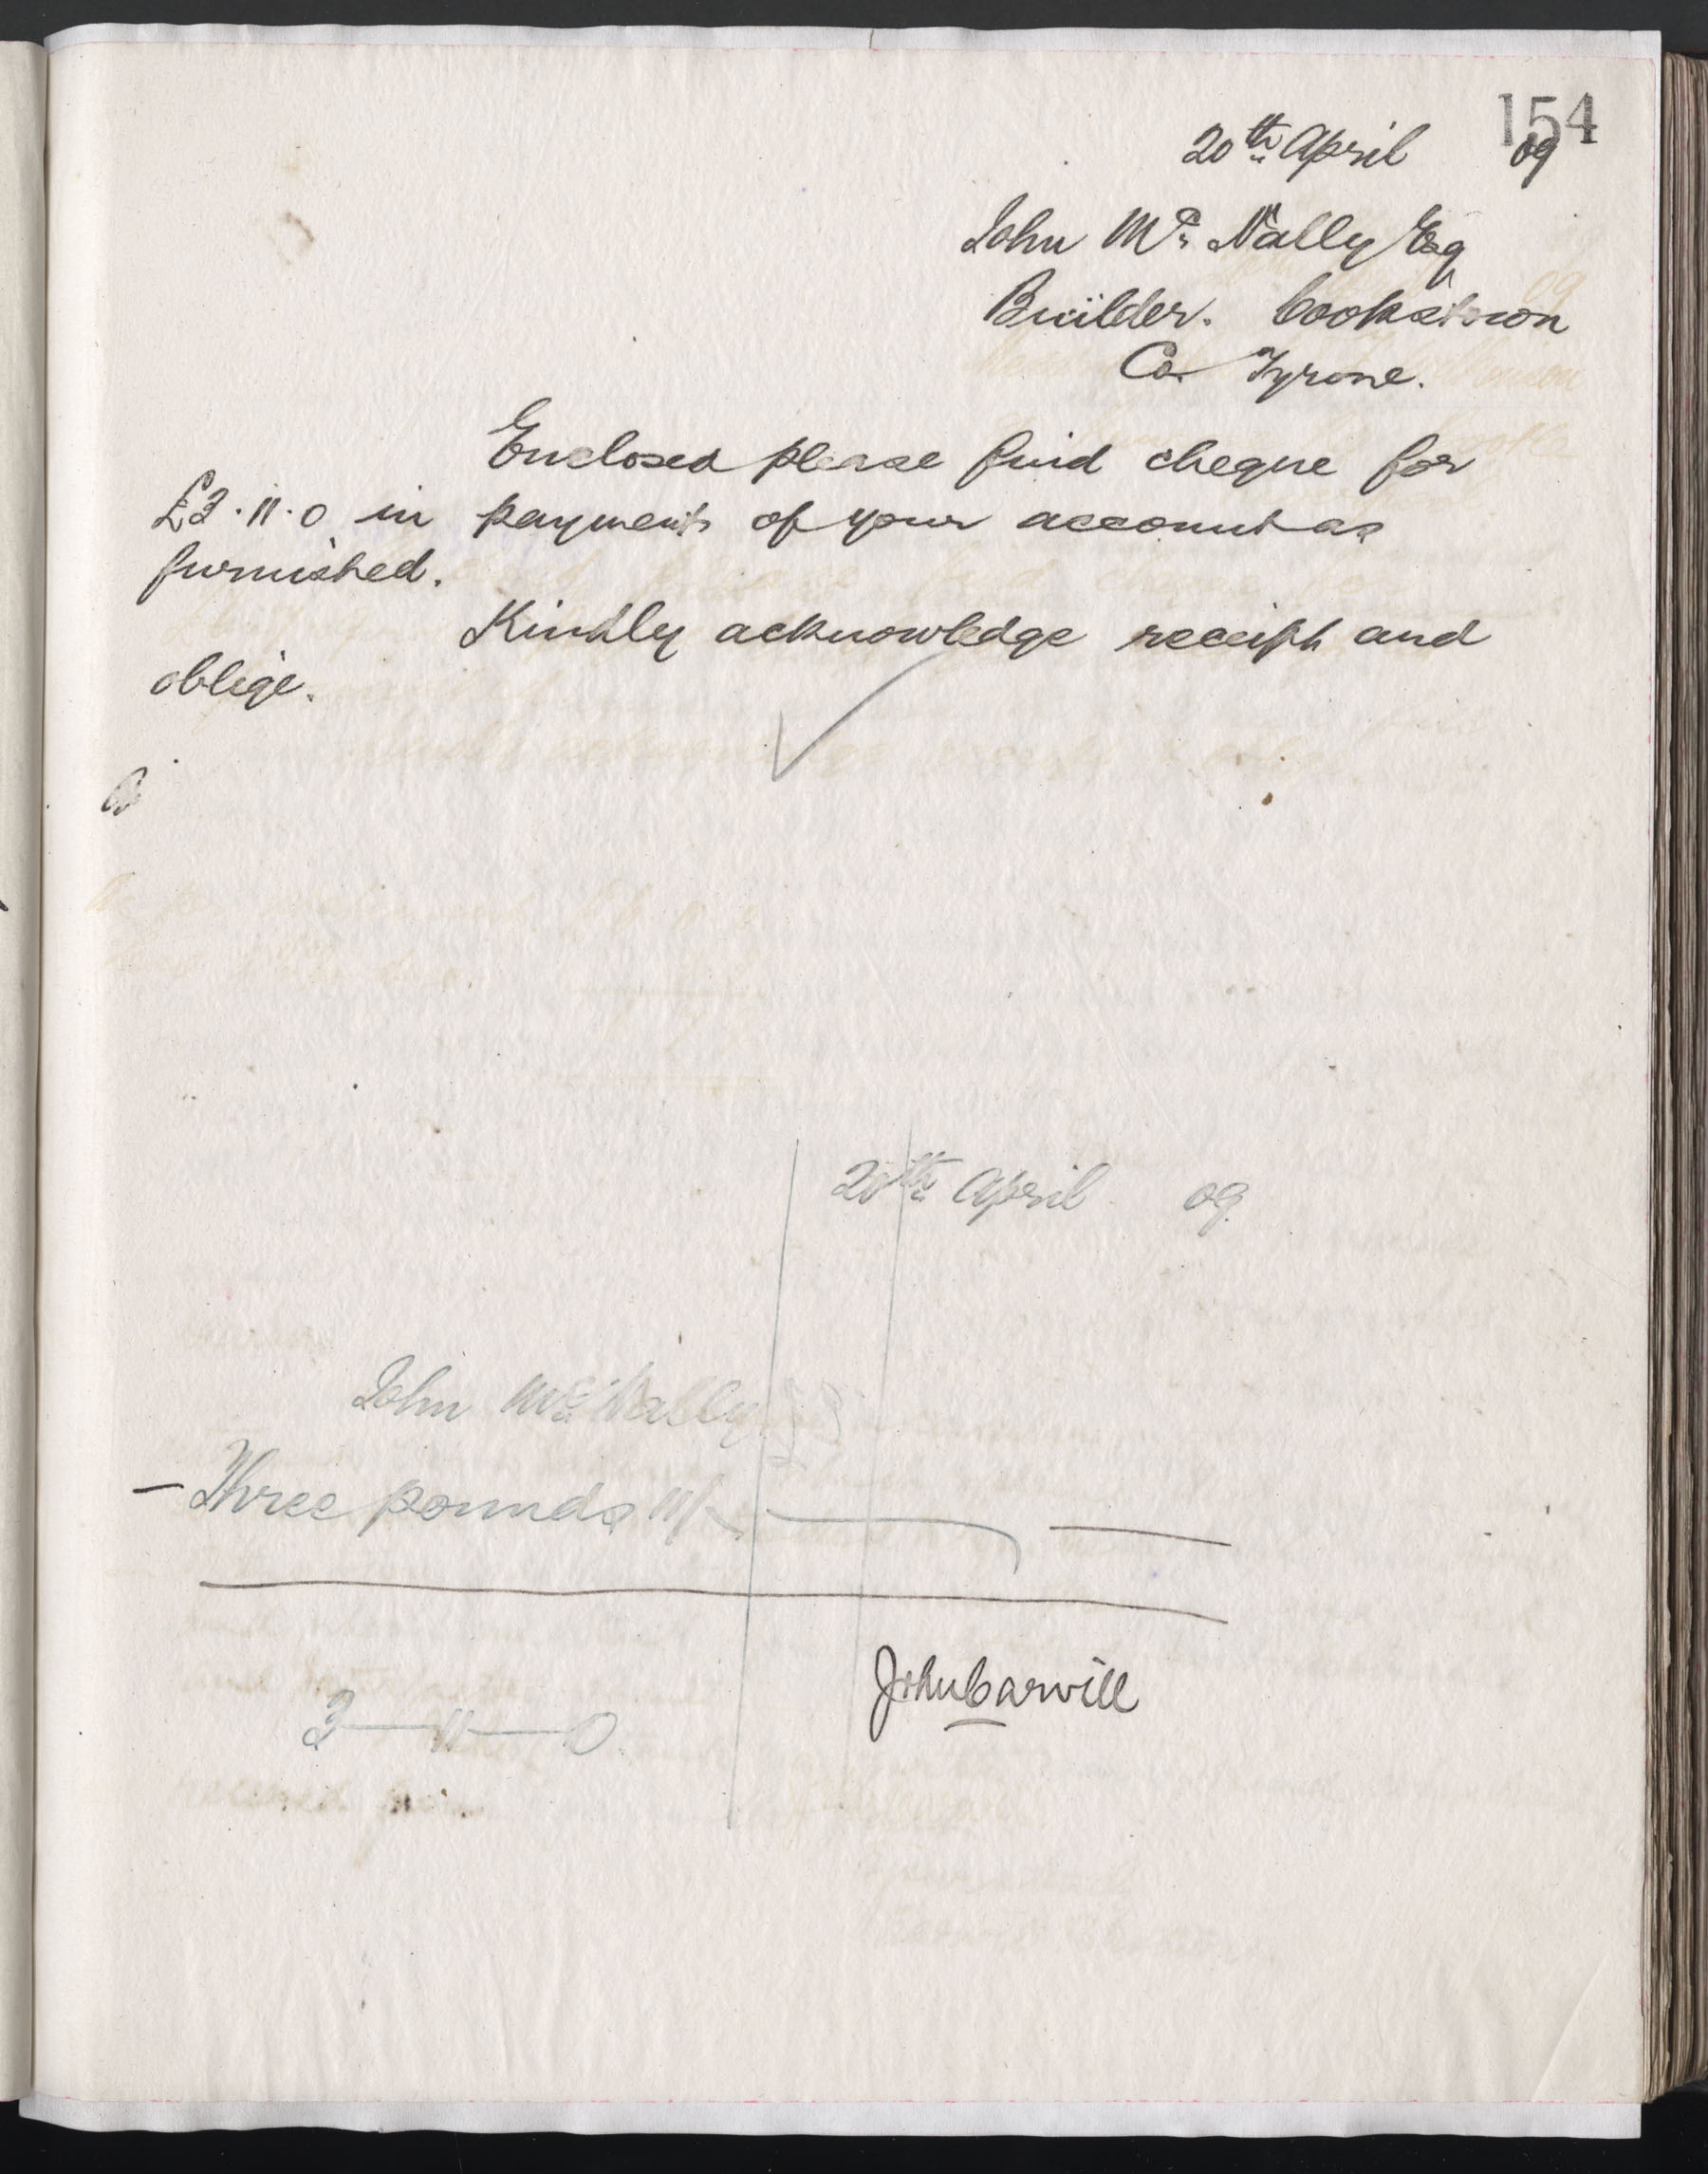 154
20th April 09
John Mc Nally Esq
Builder. Cookstown
Co. Tyrone.
Enclosed please find cheque for
£3.11.0 in payment of your account as
furnished.
Kindly acknowledge receipt and
oblige.
20th April 09.
John Mc Nally
Three pounds 11/-
John Carvill
3—11—0.